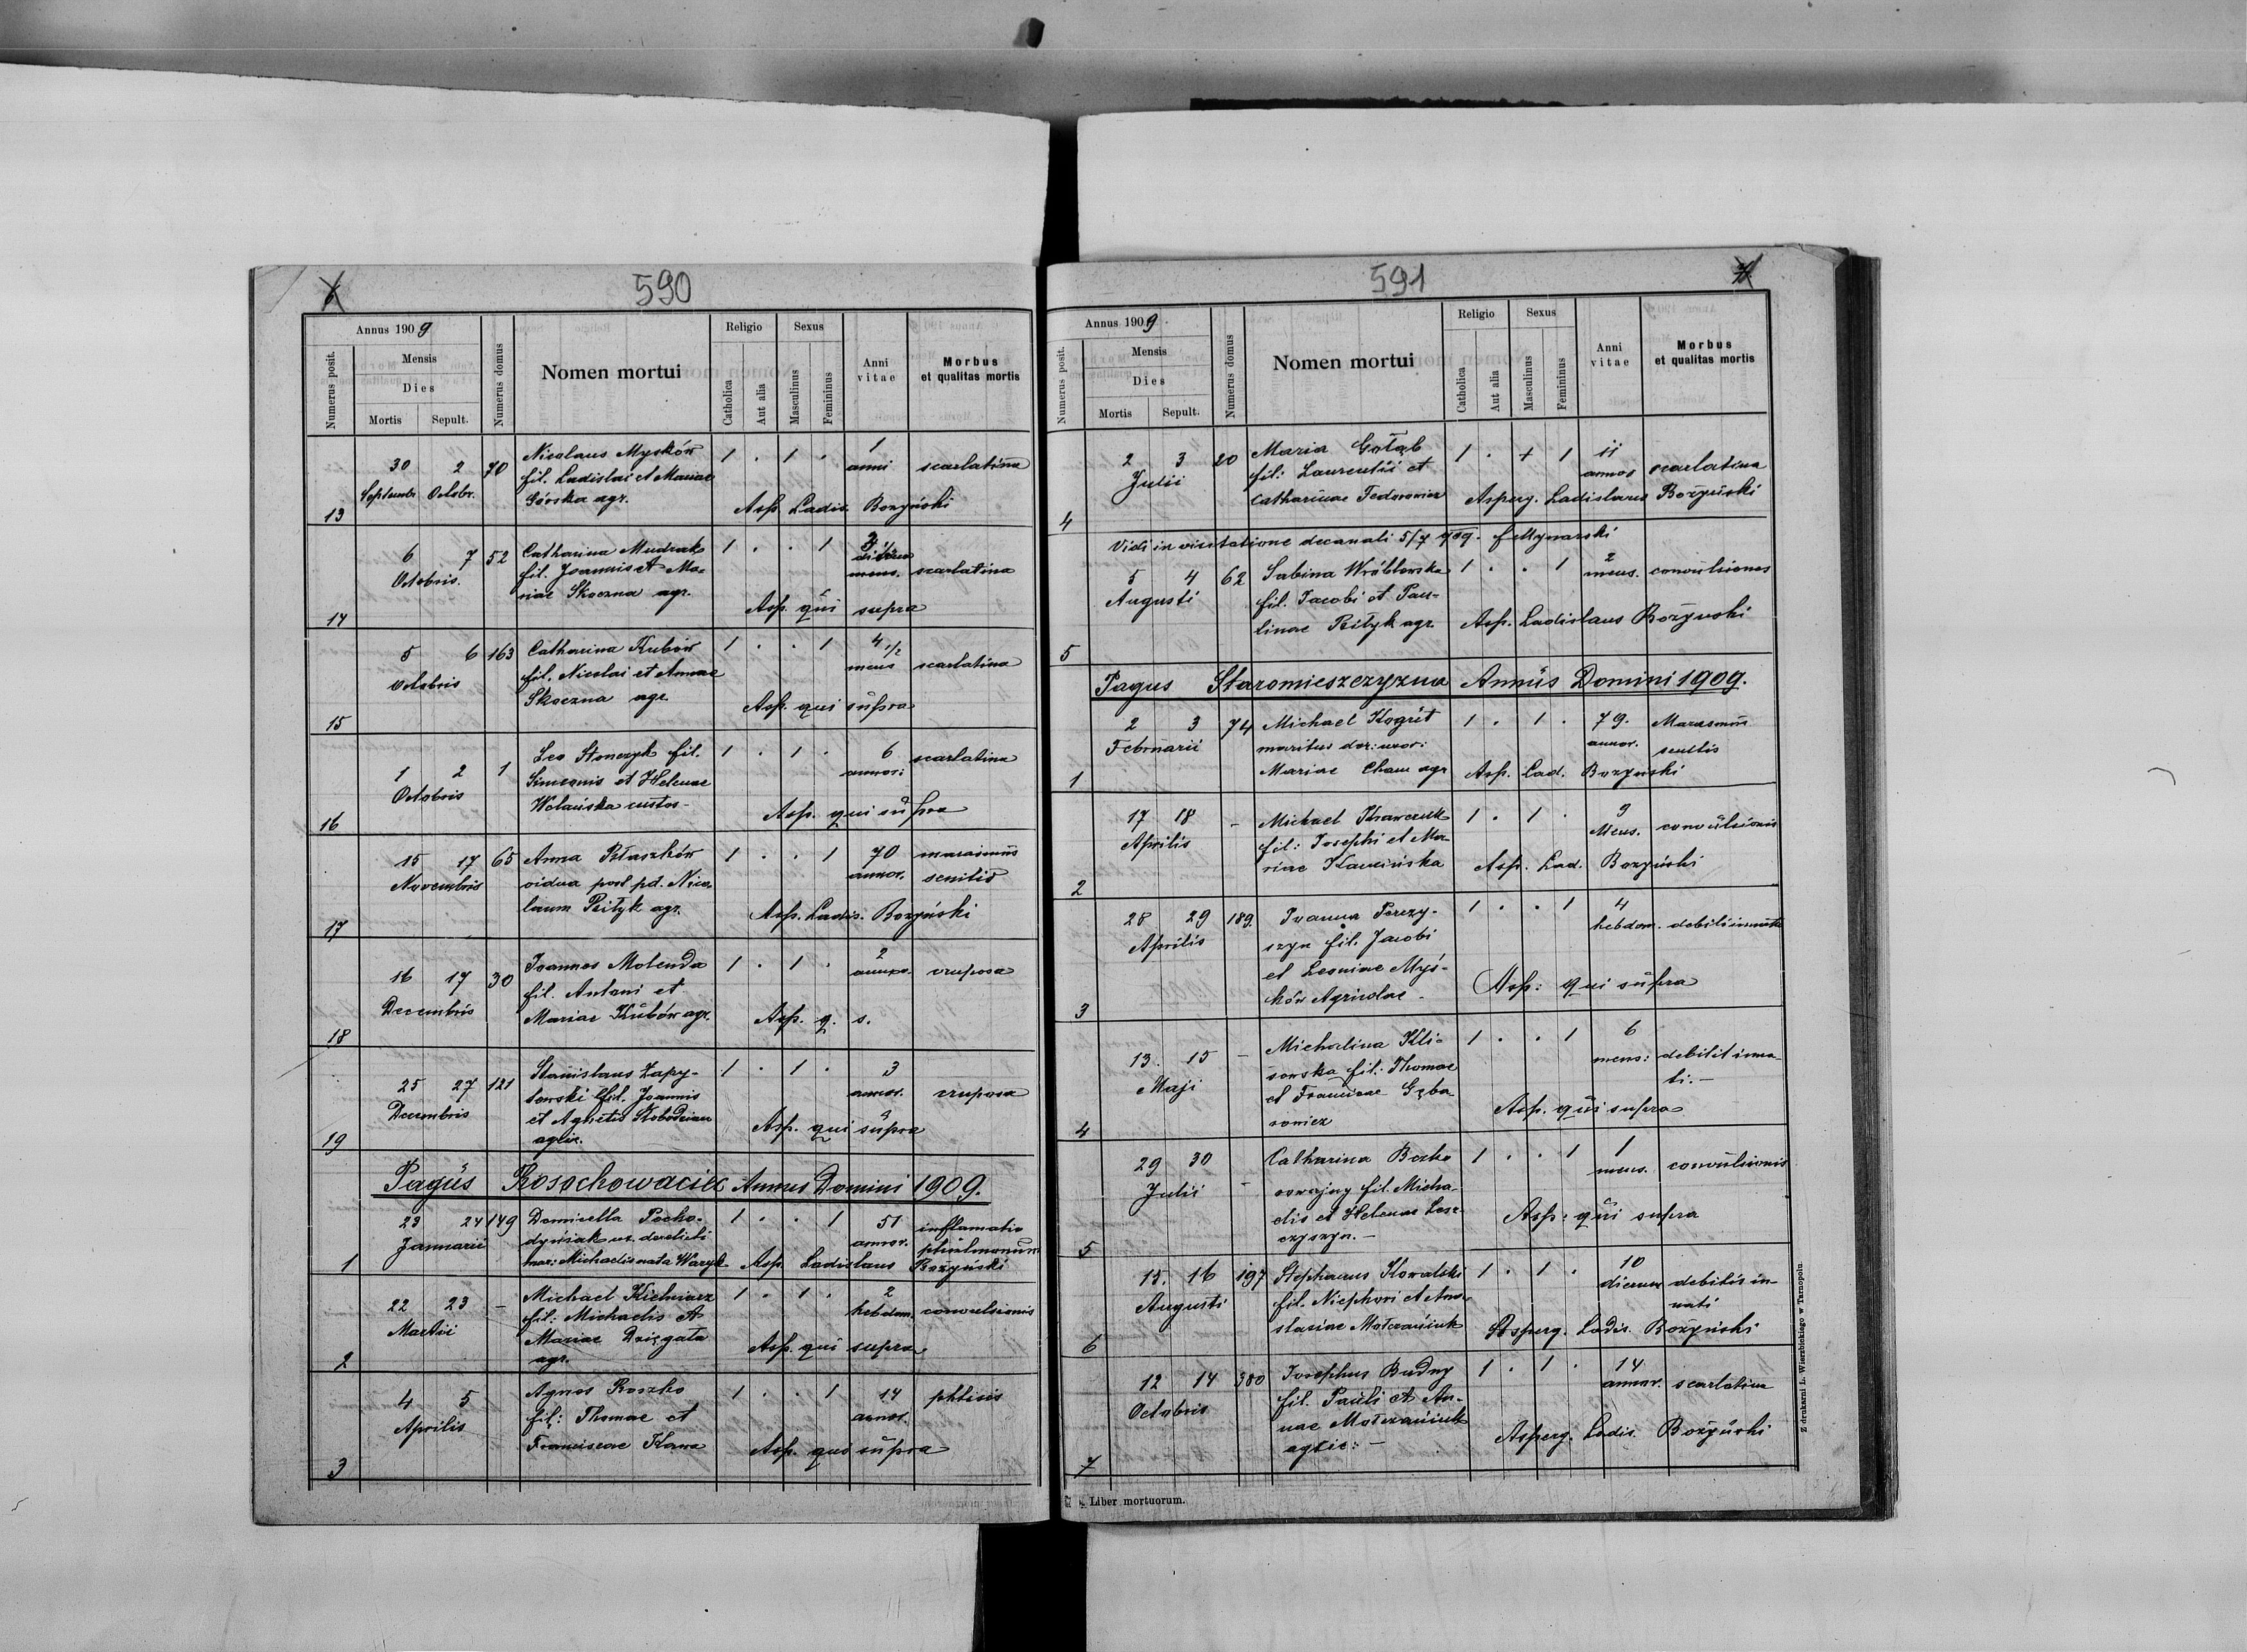 590
Annus 1909
Numerus posit.
Mensis
Dies
Mortis Sepult.
Numerus domus
Nomen mortui
Religio
Catholica
Aut alia
Sexus
Masculinus
Femininus
Anni vitae
Morbus
et qualitas mortis
30 2 70 Nicolaus Myśków 1 . 1 . 1
Septembr. Octobr. fil. Ladislai et Mariae anni scarlatina
13 Górska agr. Asp. Ladis. Bozyński
6 7 52 Catharina Mudrak 1 . . 1
Octobris. fil. Joannis et Ma- mens. scarlatina
14 riae Skoczna agr. Asp. qui supra
5 6 163 Catharina Kubów 1 . . 1 4 1/2
Octobris fil. Nicolai et Annae mens scarlatina
15 Skoczna agr. Asp. qui supra
1 2 1 Leo Stonczyk fil. 1 . 1 . 6 scarlatina
Octobris Simeonis et Helenae annor:
16 Wolańska custos- Asp. qui supra
15 17 65 Anna Ptaszków 1 . . 1 70 marasmus
Novembris vidua post pd. Nico- annor. senilis
17 laum Psityk agr. Asp. Ladis. Bozyński
16 17 30 Joannes Molenda 1 . 1 . 2
Decembris fil. Antoni et annor. cruposa
18 Mariae Kubów agr. Asp. q. s.
25 27 121 Stanislaus Zapy- 1 . 1 . 3
Decembris towski fil. Joannis annor. cruposa
et Agnetis Słobodzian Asp. qui supra
19 agric.
Pagus Kosochowacice Annus Domini 1909.
23 24 149 Domicella Pocho- 1 . . 1 51 inflamatio
Januarii dyniak ux. derelicti annor. pulmonum
1 mar: Michaelis nata Waryk Asp. Ladislaus Bozyński
22 23 – Michael Kielniarz 1 . 1 . 2
Martii fil: Michaelis et hebdom. convulsionis
Mariae Dzięgała Asp. qui supra
2 agr.
4 5 Agnes Roszko 1 . . 1 14 phtisis
Aprilis fil: Thomae et annor.
3 Franciscae Kawa Asp. qui supra
591
Annus 1909
Numerus posit.
Mensis
Dies
Mortis Sepult.
Numerus domus
Nomen mortui
Religio
Catholica
Aut alia
Sexus
Masculinus
Femininus
Anni vitae
Morbus
et qualitas mortis
2 3 20 Maria Gołąb 1 . + 1 11
Julii fil: Laurentii et annos scarlatina
4 Catharinae Fedorowicz Asperg. Ladislaus Bożyński
Vidi in visitatione decanali 5/7 909.
5 4 62 Sabina Wróblewska 1 . . 1 2
Augusti fil. Jacobi et Pau- mens. convulsiones
5 linae Psityk agr. Asp. Ladislaus Bożynski
Pagus Staromieszczyzna Annus Domini 1909.
2 3 74 Michael Kogut 1 . 1 . 79. Marasmus
Februarii maritus der: uxor: annor. senilis
1 Mariae Cham agr Asp. Lad. Bozyński
17 18 – Michael Krawczuk 1 . 1 . 9
Aprilis fil: Josephi et Ma- Mens. convulsionis
2 riae Kamińska Asp. Lad. Bozyński
28 29 189. Ivanna Perezy- 1 . . 1 4
Aprilis szyn fil. Jacobi hebdom.
et Leoniae Myś-
3 ków Agricolae- Asp: qui supra
13. 15 – Michalina Kli- 1 . . 1 6
Maji sowska fil. Thomae mens: debilit inna-
et Francicae Gęba- ti.–
4 rowicz Asp. qui supra
29 30 Catharina Bezko 1 . . 1 1
Julii – rowajny fil. Micha- mens. convulsionis
elis et Helenae Lesz- Asp: qui supra
5 czyszyn.–
15. 16 197 Stephanus Kowalski 1 . 1 . 10
Augusti fil. Nicphori et Ana- dierum debilis in-
stasiae Mołczaniuk nati
6 Asperg. Ladis. Bozyński
12 14 380 Josephus Budny 1 . 1 . 14
Octobris fil. Pauli et An- annor. scarlatina
nae Mołczaniuk
7 agric:– Asperg. Ladis. Bożyński
Liber mortuorum.
Z drukarni L. Wierzbickiego w Tarnopolu.